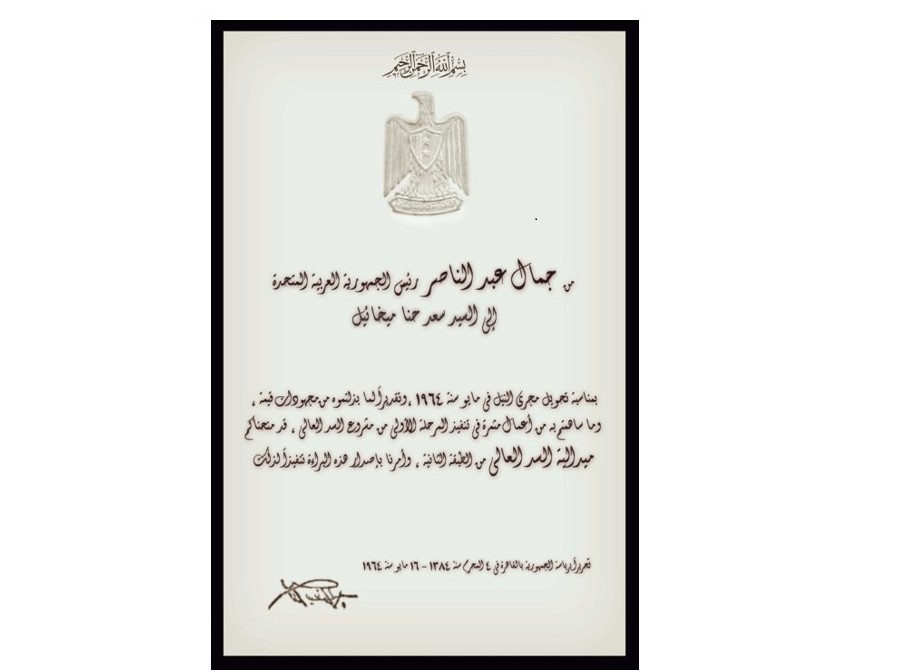 بسم الله الرحمن الرحيم
من جمال عبد الناصر رئيس الجمهورية العربية المتحدة
إلى السيد سعد حنا ميخائيل
بمناسبة تحويل مجرى النيل في مايو سنة ١٩٦٤ ، وتقديراً لما بذلتموه من مجهودات قيمة ،
وما ساهمتم به من أعمال مثمرة في تنفيذ المرحلة الأولى من مشروع السد العالي ، قد منحناكم
ميدالية السد العالي من الطبقة الثانية ، وأمرنا بإصدار هذه البراءة تنفيذاً لذلك
تحريراً برياسة الجمهورية بالقاهرة في ٤ المحرم سنة ١٣٨٤ - ١٦ مايو سنة ١٩٦٤